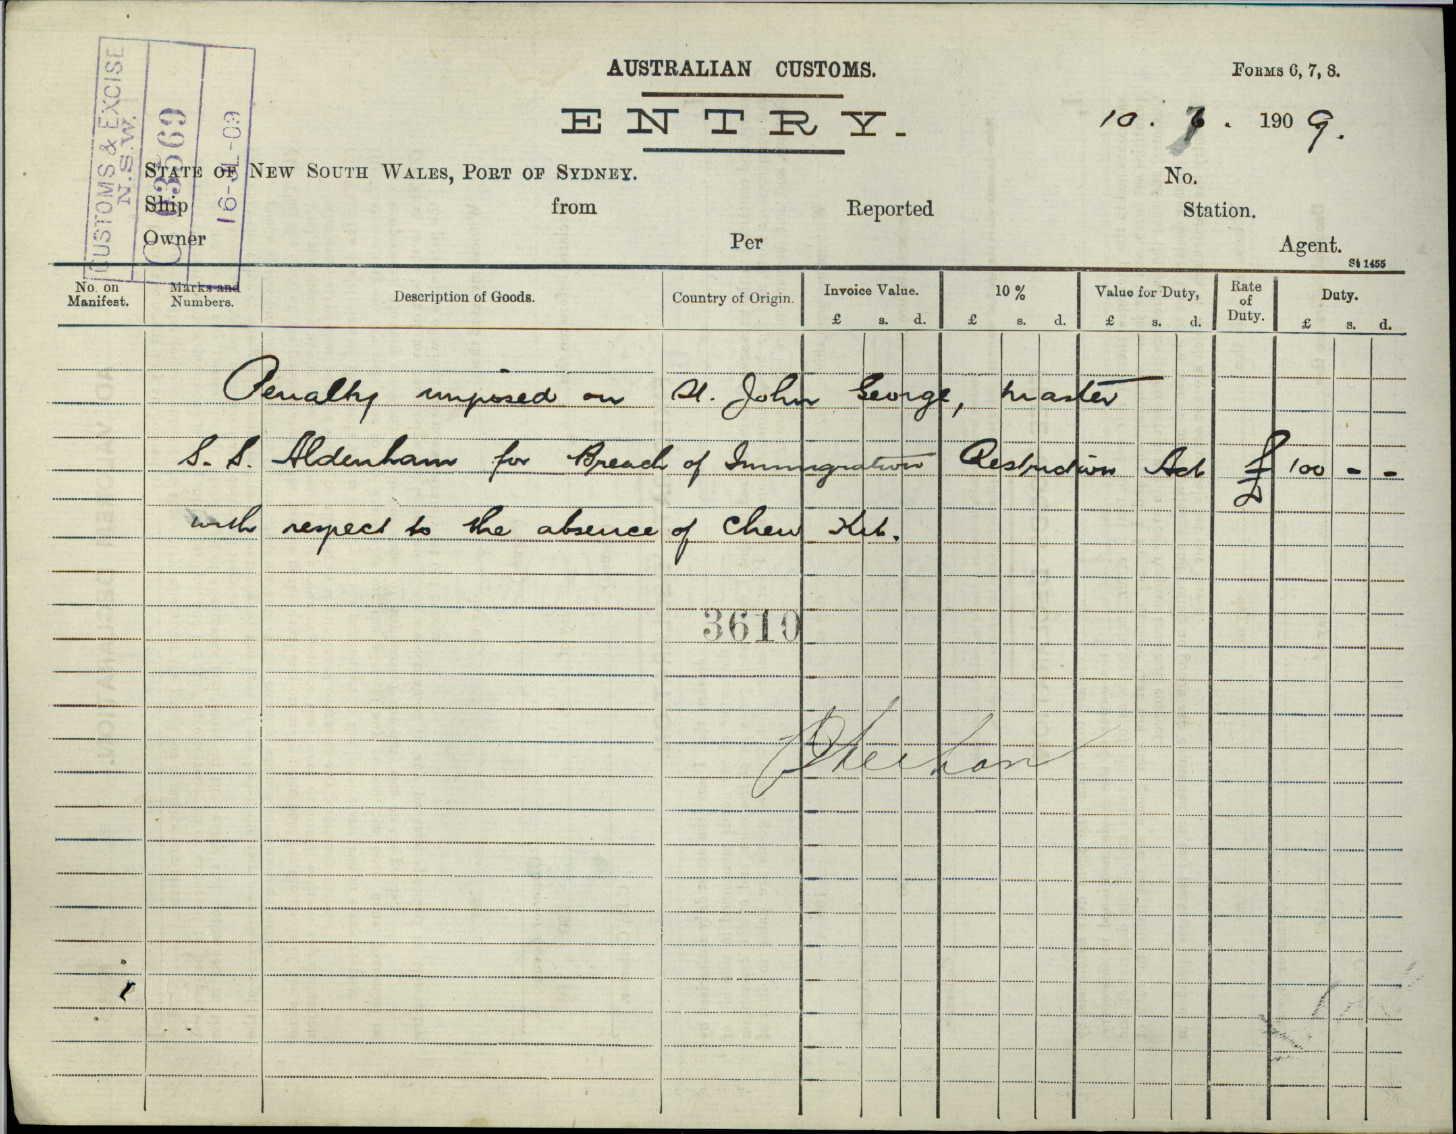 CUSTOMS & EXCISE
N.S.W.
C 03569
16-JL-09
AUSTRALIAN CUSTOMS.
FORMS 6, 7, 8.
ENTRY.
10. 7. 1909.
STATE OF NEW SOUTH WALES, PORT OF SYDNEY.
No.
Ship from Reported Station.
Owner Per Agent.
St 1455
No. on Manifest. Marks and Numbers. Description of Goods. Country of Origin. Invoice Value. 10 % Value for Duty, Rate of Duty. Duty.
£ s. d. £ s. d. £ s. d. £ s. d.
Penalty imposed on St. John George, Master
S. S. Aldenham for Breach of Immigration Restriction Act £ 100 - -
with respect to the absence of Chew Kit.
3610
Sheehan